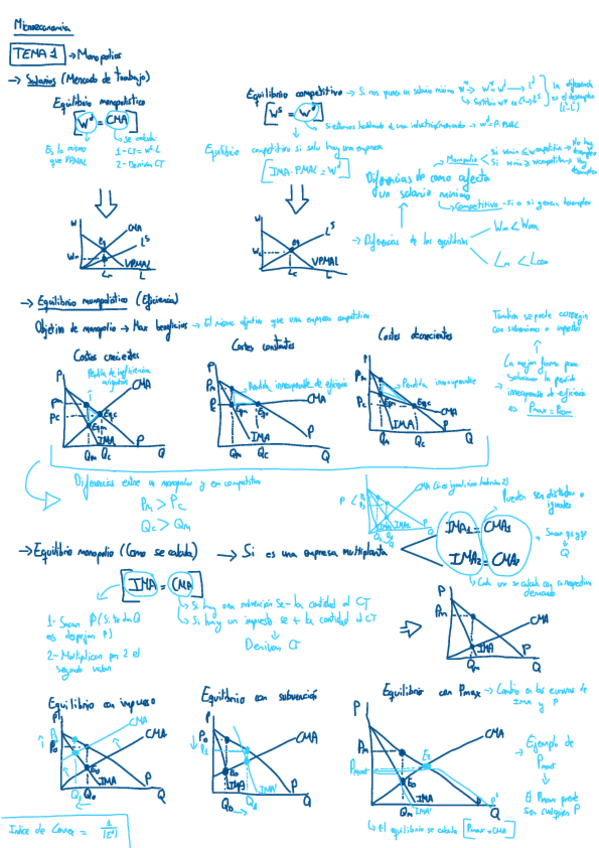 Microeconomía
TEMA 1 → Monopolios
→ Salarios (Mercado de trabajo)
Equilibrio monopolístico
[Wᵈ = CMA]
Es lo mismo que VPMAL
Se calcula:
1- CT = Wˢ·L
2- Derivar CT
Equilibrio competitivo → Si nos ponen un salario mínimo
[Wˢ = Wᵈ]
Equilibrio competitivo si solo hay una empresa
[IMA · PMAL = Wᵈ]
Diferencias de como afecta un salario mínimo
Monopolio
Competitivo
→ Diferencias de los equilibrios
Wm < Wcom
Lm < Lcom
W
CMA
Lˢ
E1
Wm
VPMAL
Lm
L
W
Lˢ
E1
VPMAL
Lc
L
→ Equilibrio monopolístico (Eficiencia)
Objetivo de monopolio → Max beneficios → El mismo objetivo que una empresa competitiva
También se puede corregir con subvenciones o impuestos
La mejor forma para solucionar la pérdida irrecuperable de eficiencia es Pmax = Pcom
Costes crecientes
Costes constantes
Costes decrecientes
P
Pérdida de eficiencia
CMA
Pm
Pc
Egc
Egm
IMA
P
Qm Qc
Q
P
Pérdida irrecuperable de eficiencia
Pm
Pc
Egm
Egc
CMA
IMA
P
Qm
Qc
Q
P
Pm
Pérdida irrecuperable
Pc
Egm
Egc
CMA
IMA
P
Qm
Qc
Q
Diferencias entre un monopolio y un competitivo
Pm > Pc
Qc > Qm
→ Equilibrio monopolio (Como se calcula) → Si es una empresa multiplanta
IMA₁ = CMA₁
IMA₂ = CMA₂
Pueden ser distintos o iguales
Cada uno se calcula con su respectiva demanda
[IMA = CMA]
1- Sacar P (Si te dan Q es despejar P)
2- Multiplicar por 2 el segundo valor
→ Si hay una subvención se - la cantidad al CT
→ Si hay un impuesto se + la cantidad al CT
Derivar CT
P
Pm
CMA
IMA
P
Qm
Q
Equilibrio con impuesto
Equilibrio con subvención
Equilibrio con Pmax → Cambio en las curvas de IMA y P
P
CMA
CMA
P0
E0
IMA
P
Q0
Q
P
P0
P1
CMA
E0
IMA
IMA'
P
Q0
Q1
Q
P
Pm
Pmax
E1
CMA
E0
IMA
IMA'
P
P'
Qm
Q
→ Ejemplo de Pmax
El Pmax puede ser cualquier P
→ El equilibrio se calcula [Pmax = CMA]
Indice de Lerner = 1/|Eᵈ|